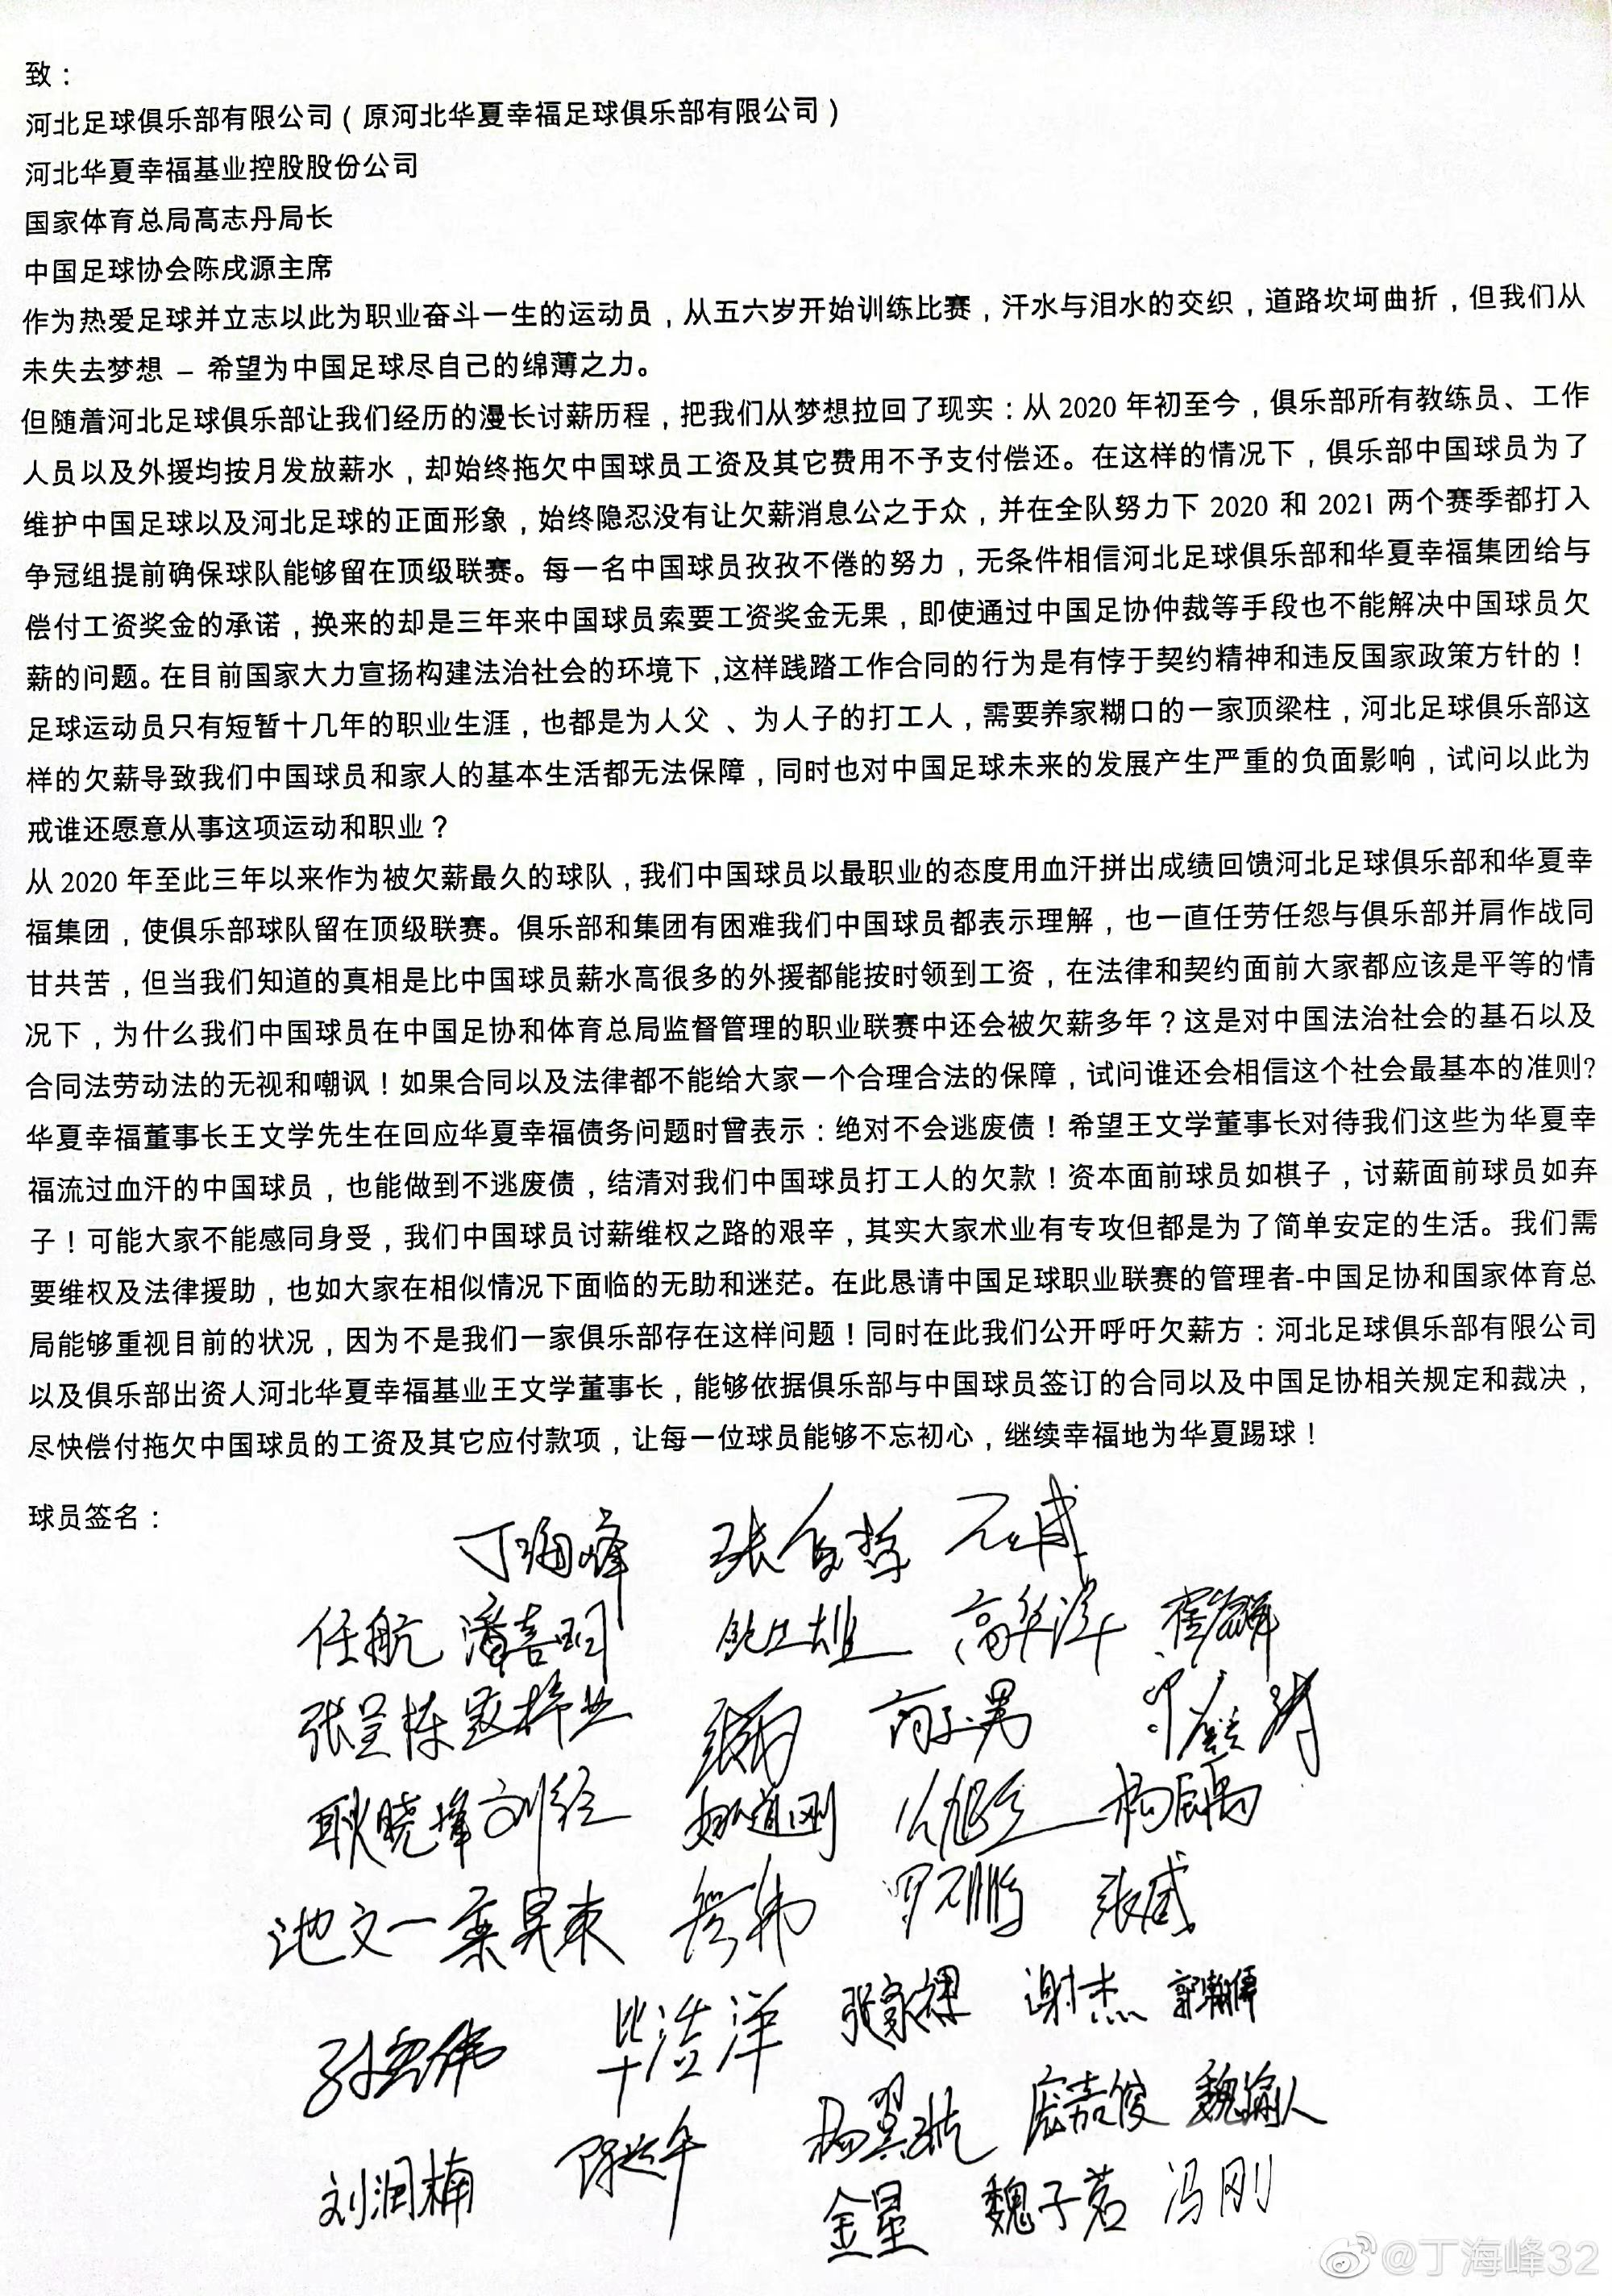 致：
河北足球俱乐部有限公司（原河北华夏幸福足球俱乐部有限公司）
河北华夏幸福基业控股股份公司
国家体育总局高志丹局长
中国足球协会陈戌源主席
作为热爱足球并立志以此为职业奋斗一生的运动员，从五六岁开始训练比赛，汗水与泪水的交织，道路坎坷曲折，但我们从
未失去梦想 – 希望为中国足球尽自己的绵薄之力。
但随着河北足球俱乐部让我们经历的漫长讨薪历程，把我们从梦想拉回了现实：从 2020 年初至今，俱乐部所有教练员、工作
人员以及外援均按月发放薪水，却始终拖欠中国球员工资及其它费用不予支付偿还。在这样的情况下，俱乐部中国球员为了
维护中国足球以及河北足球的正面形象，始终隐忍没有让欠薪消息公之于众，并在全队努力下 2020 和 2021 两个赛季都打入
争冠组提前确保球队能够留在顶级联赛。每一名中国球员孜孜不倦的努力，无条件相信河北足球俱乐部和华夏幸福集团给与
偿付工资奖金的承诺，换来的却是三年来中国球员索要工资奖金无果，即使通过中国足协仲裁等手段也不能解决中国球员欠
薪的问题。在目前国家大力宣扬构建法治社会的环境下,这样践踏工作合同的行为是有悖于契约精神和违反国家政策方针的！
足球运动员只有短暂十几年的职业生涯，也都是为人父 、为人子的打工人，需要养家糊口的一家顶梁柱，河北足球俱乐部这
样的欠薪导致我们中国球员和家人的基本生活都无法保障，同时也对中国足球未来的发展产生严重的负面影响，试问以此为
戒谁还愿意从事这项运动和职业？
从 2020 年至此三年以来作为被欠薪最久的球队，我们中国球员以最职业的态度用血汗拼出成绩回馈河北足球俱乐部和华夏幸
福集团，使俱乐部球队留在顶级联赛。俱乐部和集团有困难我们中国球员都表示理解，也一直任劳任怨与俱乐部并肩作战同
甘共苦，但当我们知道的真相是比中国球员薪水高很多的外援都能按时领到工资，在法律和契约面前大家都应该是平等的情
况下，为什么我们中国球员在中国足协和体育总局监督管理的职业联赛中还会被欠薪多年？这是对中国法治社会的基石以及
合同法劳动法的无视和嘲讽！如果合同以及法律都不能给大家一个合理合法的保障，试问谁还会相信这个社会最基本的准则?
华夏幸福董事长王文学先生在回应华夏幸福债务问题时曾表示：绝对不会逃废债！希望王文学董事长对待我们这些为华夏幸
福流过血汗的中国球员，也能做到不逃废债，结清对我们中国球员打工人的欠款！资本面前球员如棋子，讨薪面前球员如弃
子！可能大家不能感同身受，我们中国球员讨薪维权之路的艰辛，其实大家术业有专攻但都是为了简单安定的生活。我们需
要维权及法律援助，也如大家在相似情况下面临的无助和迷茫。在此恳请中国足球职业联赛的管理者-中国足协和国家体育总
局能够重视目前的状况，因为不是我们一家俱乐部存在这样问题！同时在此我们公开呼吁欠薪方：河北足球俱乐部有限公司
以及俱乐部出资人河北华夏幸福基业王文学董事长，能够依据俱乐部与中国球员签订的合同以及中国足协相关规定和裁决，
尽快偿付拖欠中国球员的工资及其它应付款项，让每一位球员能够不忘初心，继续幸福地为华夏踢球！
球员签名：
丁海峰
任航 潘喜明 鲍亚雄 高华泽
张呈栋 寇梓业
耿晓峰 刘径 姚道刚 杨
池文一 栾昊东 张威
毕浩洋 张家祺 谢杰
杨翼航 庞嘉俊
刘润楠 金星 魏子茗 冯刚
@丁海峰32